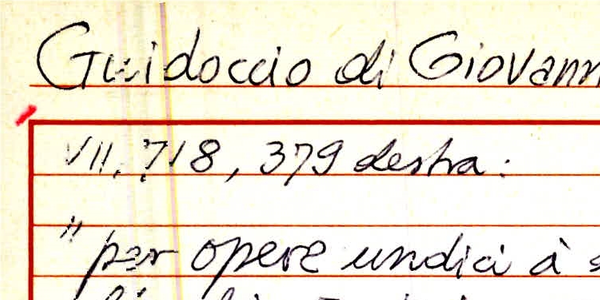 Guidoccio di Giovann
VII, 718, 379 destra:
"per opere undici à